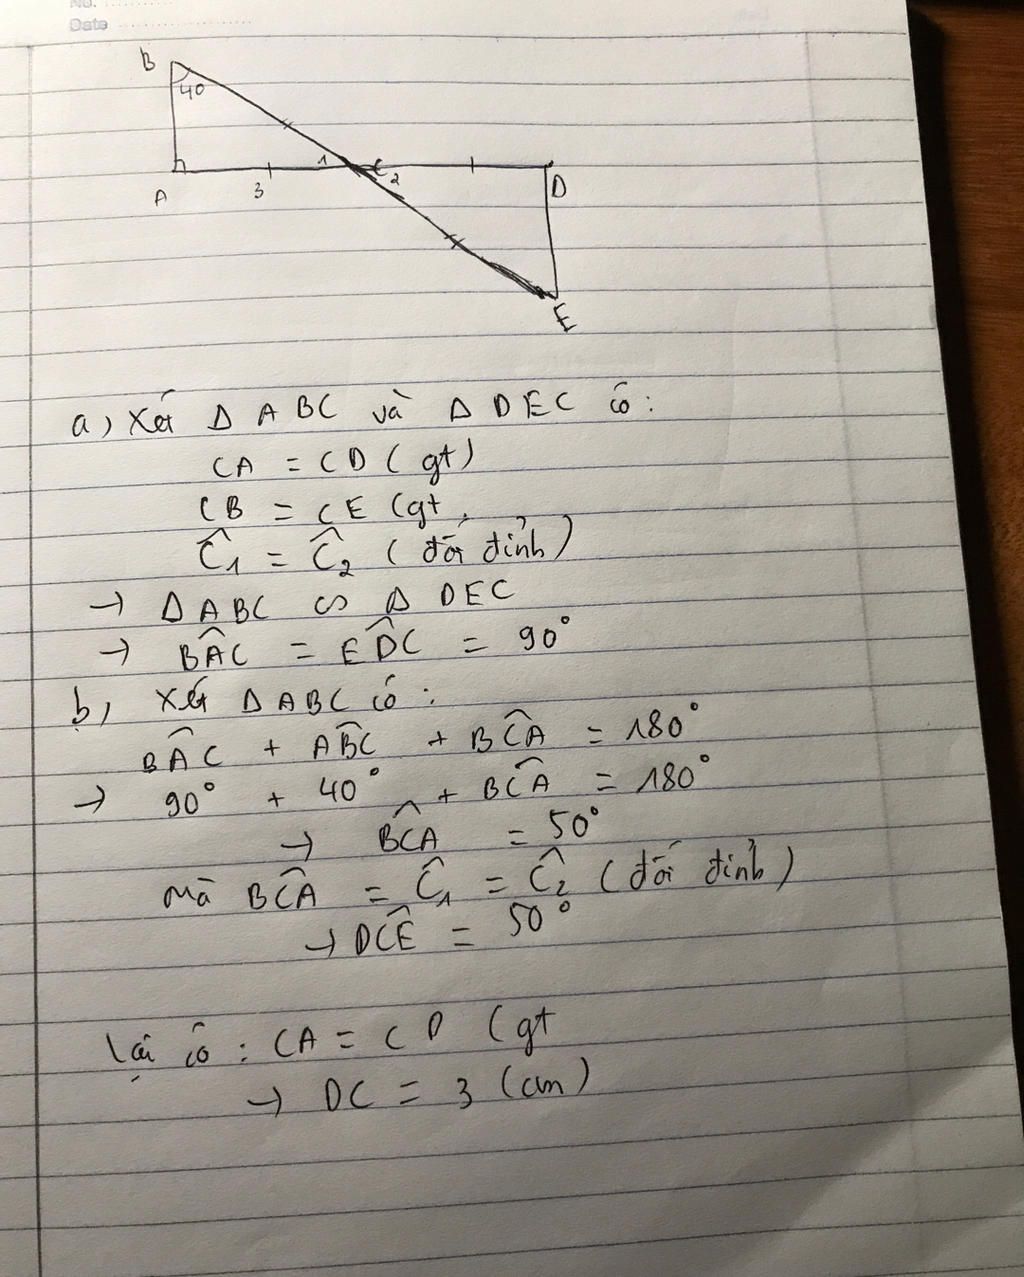 No.
Date
B
40
1
C
2
A
3
D
E
a) Xét Δ ABC và Δ DEC có:
CA = CD (gt)
CB = CE (gt
Ĉ1 = Ĉ2 (đối đỉnh)
→ Δ ABC ∽ Δ DEC
→ BÂC = ED̂C = 90°
b, Xét Δ ABC có:
BÂC + AB̂C + BĈA = 180°
→ 90° + 40° + BĈA = 180°
→ BĈA = 50°
mà BĈA = Ĉ1 = Ĉ2 (đối đỉnh)
→ DĈE = 50°
Lại có: CA = CD (gt
→ DC = 3 (cm)